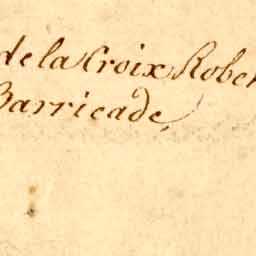 de la Croix Rober
Barricade,